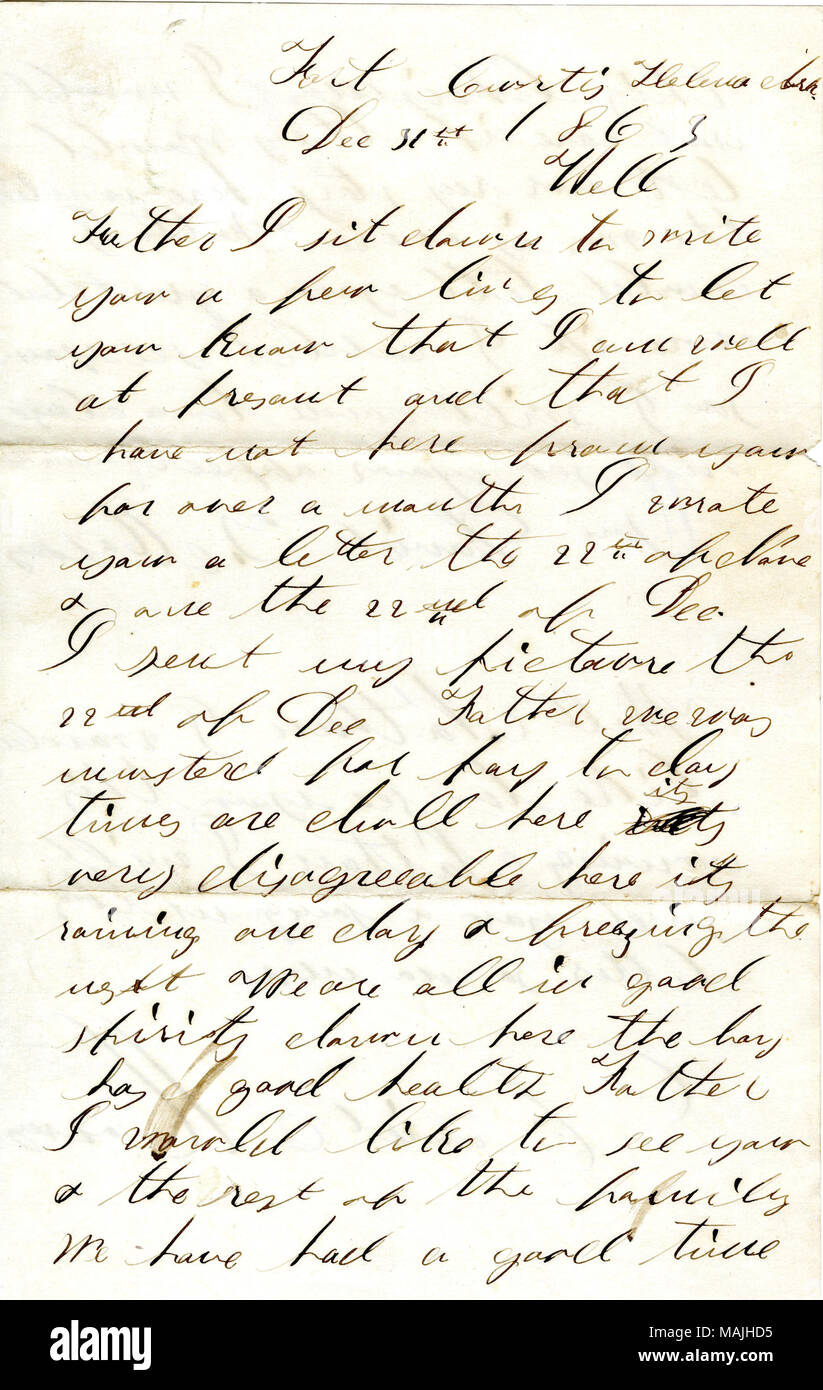 Fort Curtis Helena Ark.
Dec 31st 1863
Well
Father I sit down to write
your a few lines to let
your know that I am well
at presant and that I
have not here from your
for over a month I wrote
your a letter the 22th of Nove
& one the 22nd of Dec.
I sent my picture the
22nd of Dec Father we was
musterd for pay to day
times are dull here its
very disagreeable here its
raining one day & freezing the
next We are all in good
spirits down here the boys
has good health Father
I would like to see your
& the rest of the family
We have had a good time
alamy
Image ID: MAJHD5
www.alamy.com